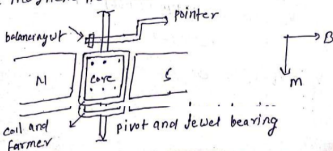 pointer
balancing wt
B
N
Core
S
m
coil and
farmer
pivot and Jewel bearing